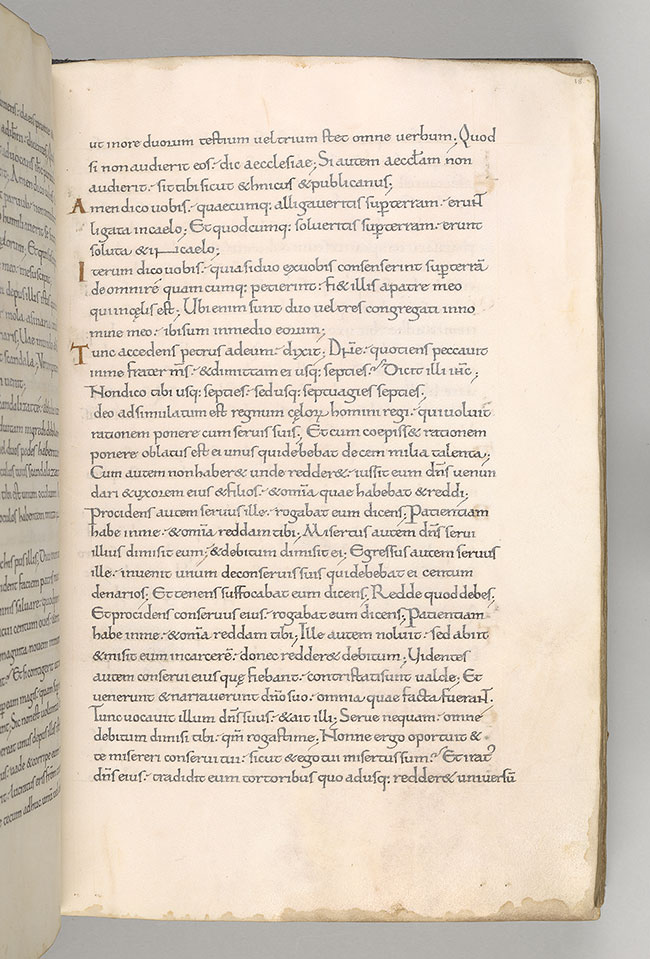 18
ut in ore duorum testium vel trium stet omne verbum; Quod
si non audierit eos· dic aecclesiae; Si autem aecclam non
audierit· sit tibi sicut &hnicus & publicanus;
Amen dico vobis· quaecumq; alligaveritis sup terram· erunt
ligata in caelo; Et quodcumq; solveritis sup terram· erunt
soluta & in caelo;
Iterum dico vobis· quia si duo ex vobis consenserint sup terrā
de omni re quamcumq; petierint· fi& illis a patre meo
qui in cęlis est; Ubi enim sunt duo vel tres congregati in no
mine meo· ibi sum in medio eorum;
Tunc accedens petrus ad eum· dixit; Dn̄e· quotiens peccavit
in me frater m̄s· & dimittam ei usq; septies? Dicit illi ih̄c;
Non dico tibi usq; septies· sed usq; septuagies septies;
deo adsimulatum est regnum cęlorꝝ homini regi· qui voluit
rationem ponere cum servis suis; Et cum coepiss& rationem
ponere oblatus est ei unus qui debebat decem milia talenta;
Cum autem non haber& unde redder&· iussit eum dn̄s venun
dari & uxorem eius & filios· & om̄ia quae habebat & reddi;
Procidens autem servus ille· rogabat eum dicens; Patientiam
habe in me· & om̄ia reddam tibi; Misertus autem dn̄s servi
illius dimisit eum; & debitum dimisit ei; Egressus autem servus
ille· invenit unum de conservis suis qui debebat ei centum
denarios; Et tenens suffocabat eum dicens; Redde quod debes;
Et procidens conservus eius· rogabat eum dicens; Patientiam
habe in me· & om̄ia reddam tibi; Ille autem noluit· sed abiit
& misit eum in carcerē· donec redder& debitum; Videntes
autem conservi eius quę fiebant· contristati sunt valde; Et
venerunt & narraverunt dn̄o suo· omnia quae facta fuerant·
Tunc vocavit illum dn̄s suus· & ait illi; Serve nequam· omne
debitum dimisi tibi· qm̄ rogasti me; Nonne ergo oportuit &
te misereri conservi tui· sicut & ego tui misertus sum? Et irat'
dn̄s eius· tradidit eum tortoribus quo adusq; redder& universū